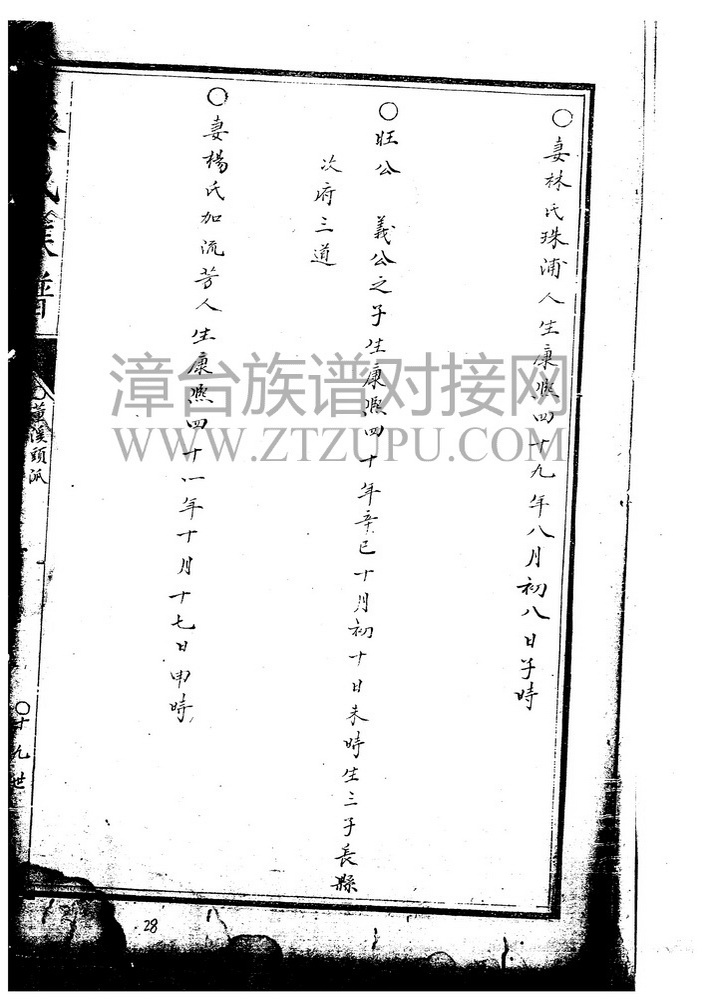 〇妻林氏珠浦人生康熙四十九年八月初八日子時
〇旺公 義公之子生康熙四十年辛巳十月初十日未時生三子長縣
次府三道
〇妻楊氏加流芳人生康熙四十一年十月十七日申時
氏族譜
溪頭派
〇十九世
28
漳台族谱对接网
WWW.ZTZUPU.COM